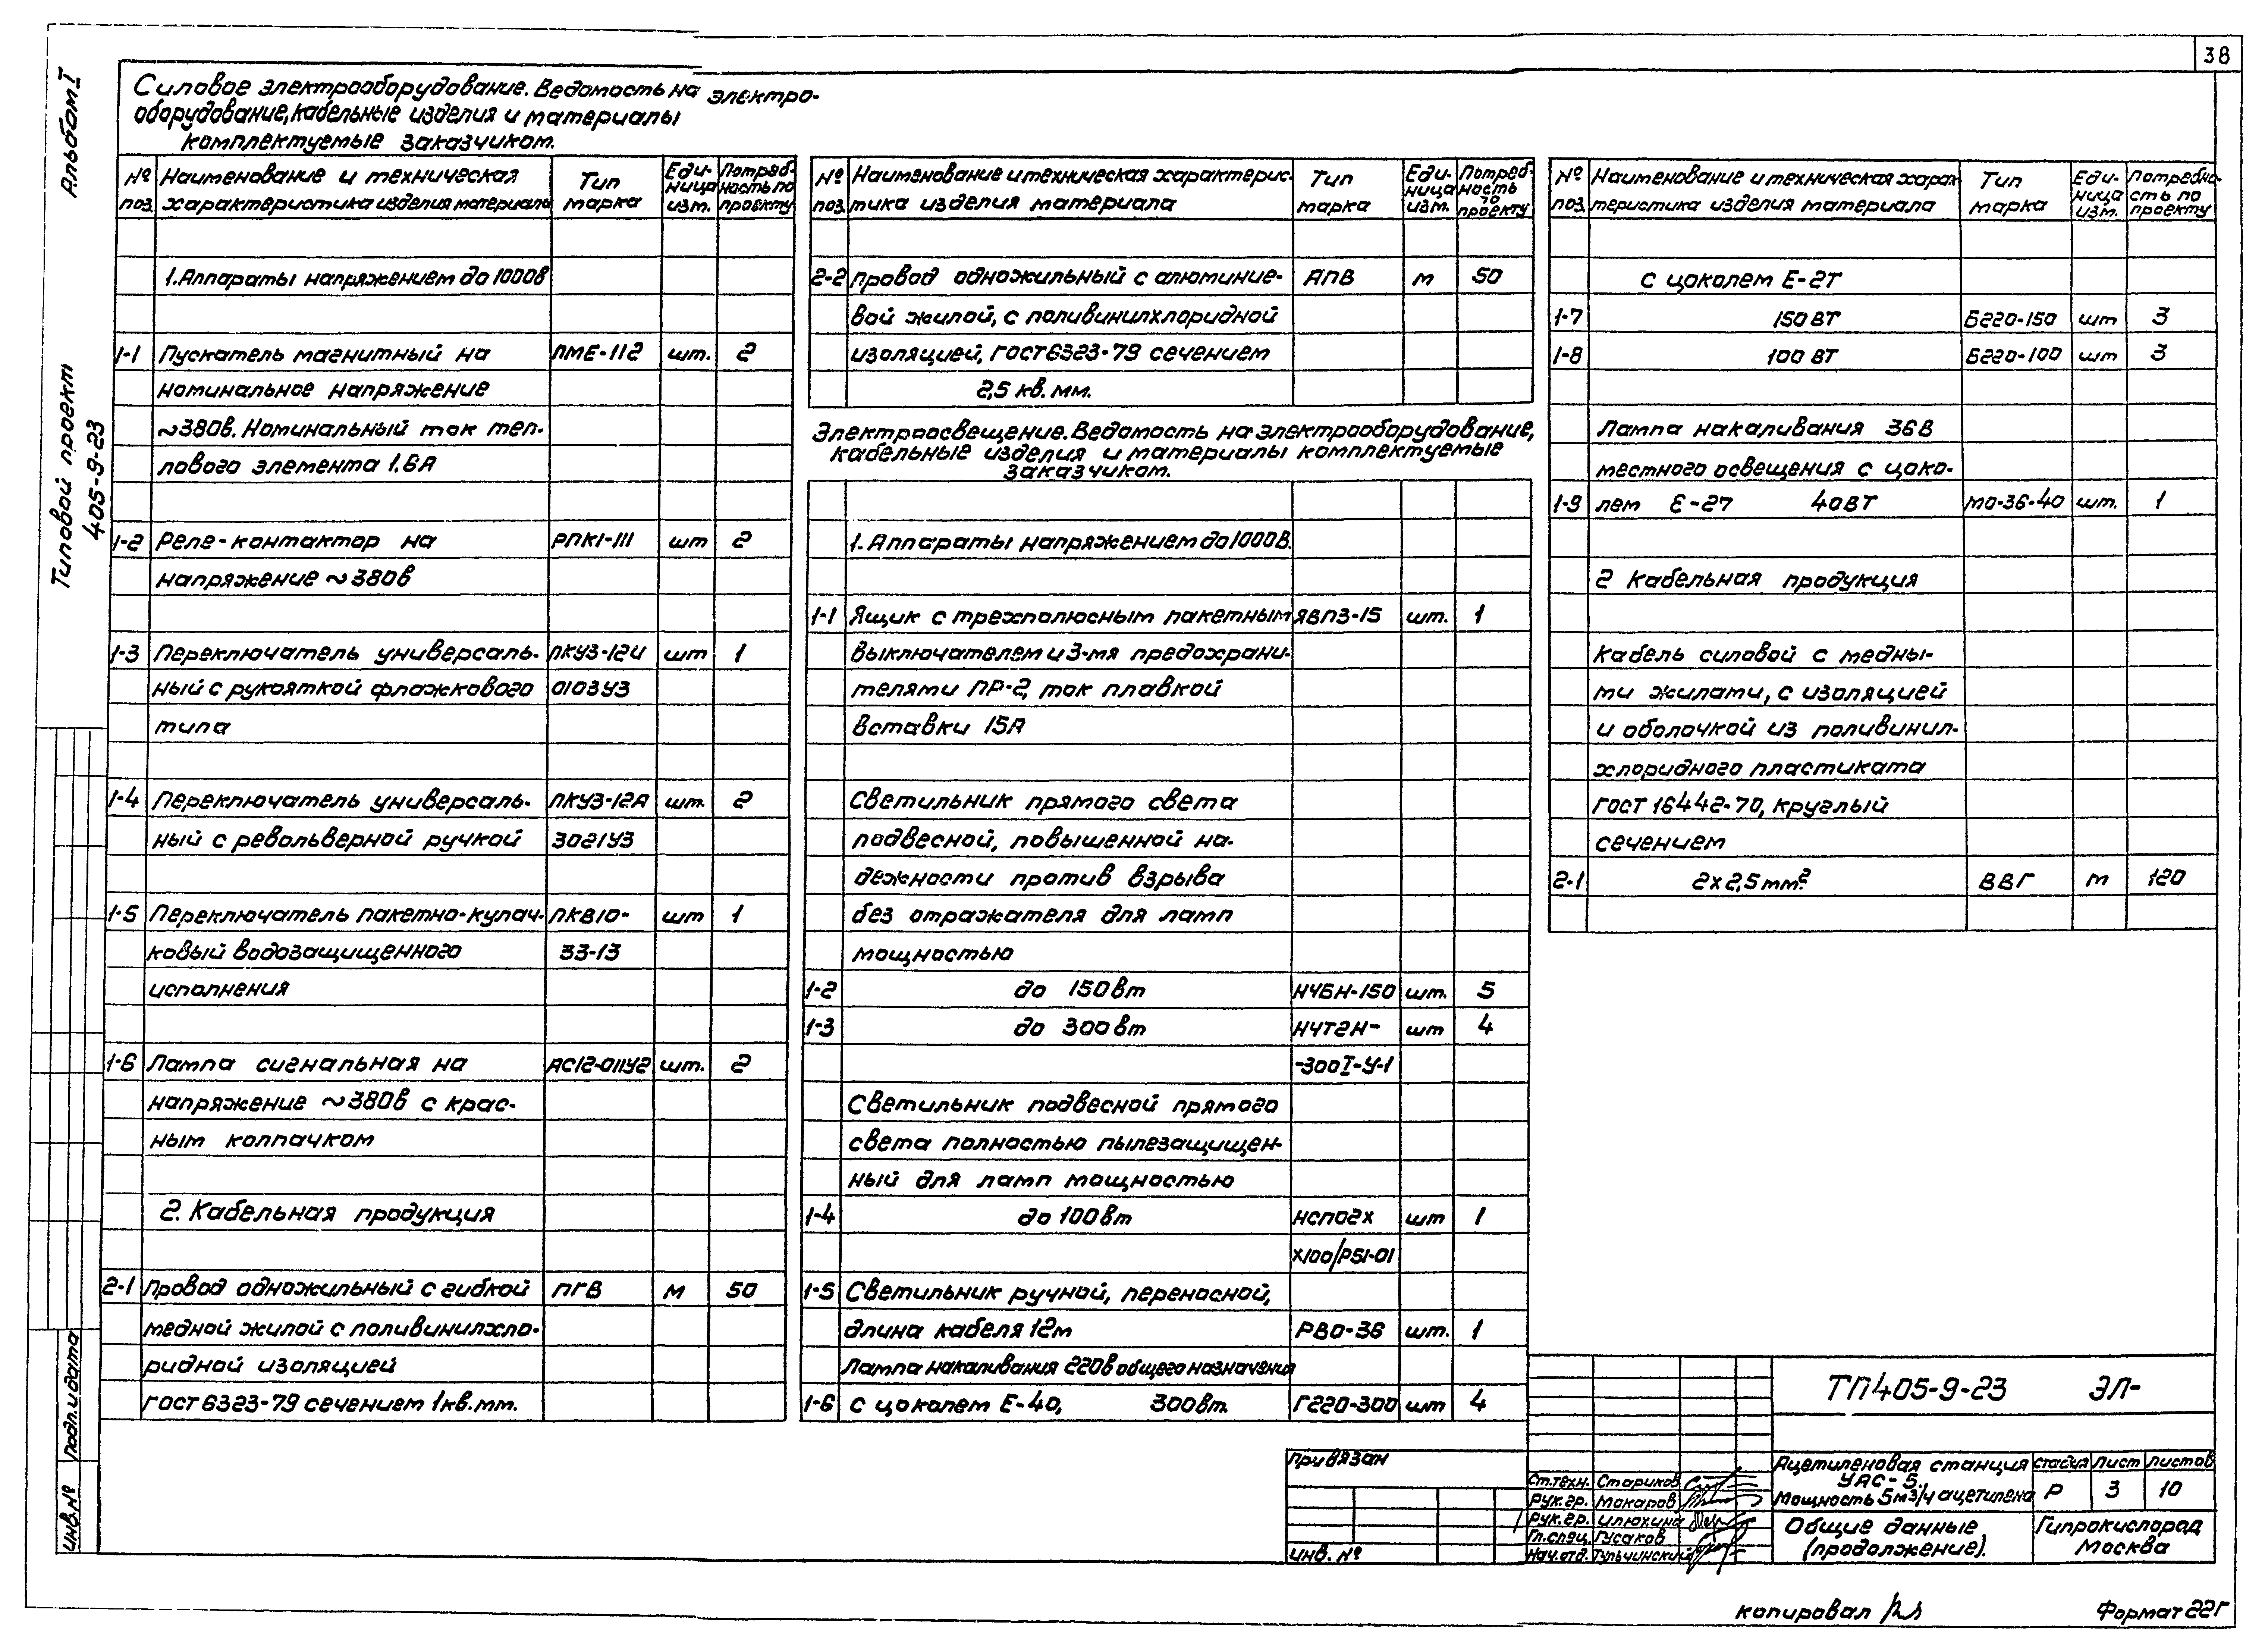 38
Альбом I
Типовой проект
405-9-23
Силовое электрооборудование. Ведомость на электро-
оборудование, кабельные изделия и материалы
комплектуемые заказчиком.
№ поз. Наименование и техническая характеристика изделия материала Тип марка Еди-ница изм. Потреб-ность по проекту
1. Аппараты напряжением до 1000в
1-1 Пускатель магнитный на ПМЕ-112 шт. 2
номинальное напряжение
~380в. Номинальный ток теп-
лового элемента 1.6А
1-2 Реле-контактор на РПК1-111 шт 2
напряжение ~380в
1-3 Переключатель универсаль- ПКУ3-12И шт 1
ный с рукояткой флажкового 0103У3
типа
1-4 Переключатель универсаль- ПКУ3-12А шт. 2
ный с револьверной ручкой 3021У3
1-5 Переключатель пакетно-кулач- ПКВ10- шт 1
ковый водозащищенного 33-13
исполнения
1-6 Лампа сигнальная на АС12-011У2 шт. 2
напряжение ~380в с крас-
ным колпачком
2. Кабельная продукция
2-1 Провод одножильный с гибкой ПГВ м 50
медной жилой с поливинилхло-
ридной изоляцией
ГОСТ 6323-79 сечением 1кв.мм.
№ поз. Наименование и техническая характерис-тика изделия материала Тип марка Еди-ница изм. Потреб-ность по проекту
2-2 провод одножильный с алюминие- АПВ м 50
вой жилой, с поливинилхлоридной
изоляцией, ГОСТ 6323-79 сечением
2,5 кв. мм.
Электроосвещение. Ведомость на электрооборудование,
кабельные изделия и материалы комплектуемые
заказчиком.
1. Аппараты напряжением до 1000в.
1-1 Ящик с трехполюсным пакетным ЯВПЗ-15 шт. 1
выключателем и 3-мя предохрани-
телями ПР-2, ток плавкой
вставки 15А
Светильник прямого света
подвесной, повышенной на-
дежности против взрыва
без отражателя для ламп
мощностью
1-2 до 150вт НЧБН-150 шт. 5
1-3 до 300вт НЧТ2Н- шт 4
-300I-У-1
Светильник подвесной прямого
света полностью пылезащищен-
ный для ламп мощностью
1-4 до 100вт НСП02х шт 1
х100/Р51-01
1-5 Светильник ручной, переносной,
длина кабеля 12м РВО-36 шт. 1
Лампа накаливания 220в общего назначения
1-6 с цоколем Е-40, 300вт. Г220-300 шт 4
№ поз Наименование и техническая харак-теристика изделия материала Тип марка Еди-ница изм. Потребно-сть по проекту
с цоколем Е-2Т
1-7 150 ВТ Б220-150 шт 3
1-8 100 ВТ Б220-100 шт 3
Лампа накаливания 36В
местного освещения с цоко-
1-9 лем Е-27 40ВТ МО-36-40 шт. 1
2 Кабельная продукция
Кабель силовой с медны-
ми жилами, с изоляцией
и оболочкой из поливинил-
хлоридного пластиката
ГОСТ 16442-70, круглый
сечением
2-1 2х2,5мм² ВВГ м 120
ТП405-9-23 ЭЛ-
Ацетиленовая станция
УАС-5.
Мощность 5м3/ч ацетилена
стадия лист листов
Р 3 10
Общие данные
(продолжение).
Гипрокислород
Москва
Ст.техн. Стариков
Рук.гр. Макаров
Рук.гр. Илюхина
Гл.спец. Гусаков
Нач.отд. Тульчинский
привязан
инв. №
Подп. и дата
инв. №
копировал
Формат 22Г